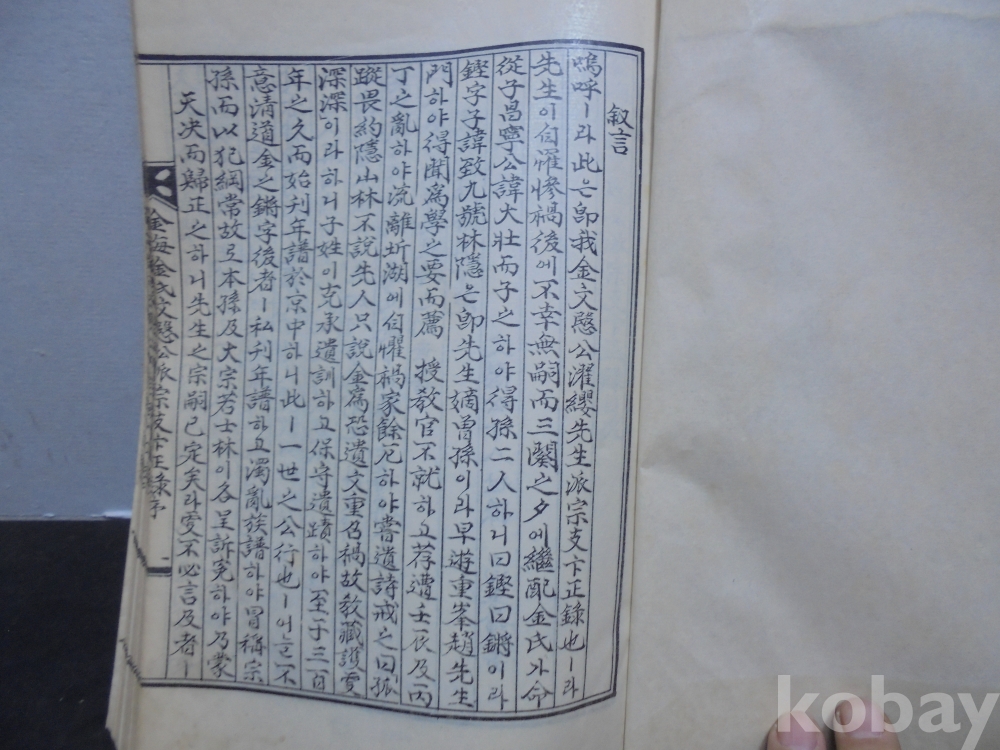 叙言
嗚呼ㅣ라此ᄂᆞᆫ卽我金文愍公濯纓先生派宗支卞正錄也ㅣ라
先生이自罹慘禍後에不幸無嗣而三闋之夕에繼配金氏가命
從子昌寧公諱大壯而子之하야得孫二人하니曰鏗曰鏘이라
鏗字子諱致九號林隱은卽先生嫡曾孫이라早遊重峯趙先生
門하야得聞爲學之要而薦 授敎官不就하고荐遭壬辰及丙
丁之亂하야流離圻湖에自懼禍家餘厄하야嘗遺詩戒之曰孤
蹤畏約隱山林不說先人只說金寫恐遺文重召禍故敎藏護
深深이라하니子姓이克承遺訓하고保守遺蹟하야至于三百
年之久而始刊年譜於京中하니此ㅣ一世之公行也ㅣ어늘不
意淸道金之鏘字後者ㅣ私刊年譜하고濁亂族譜하야冒稱宗
孫而以犯綱常故로本孫及大宗若士林이各呈訴寃하야乃蒙
天决而歸正之하니先生之宗嗣已定矣라更不必言及者ㅣ
金海金氏文愍公派宗支卞正錄序
一
kobay